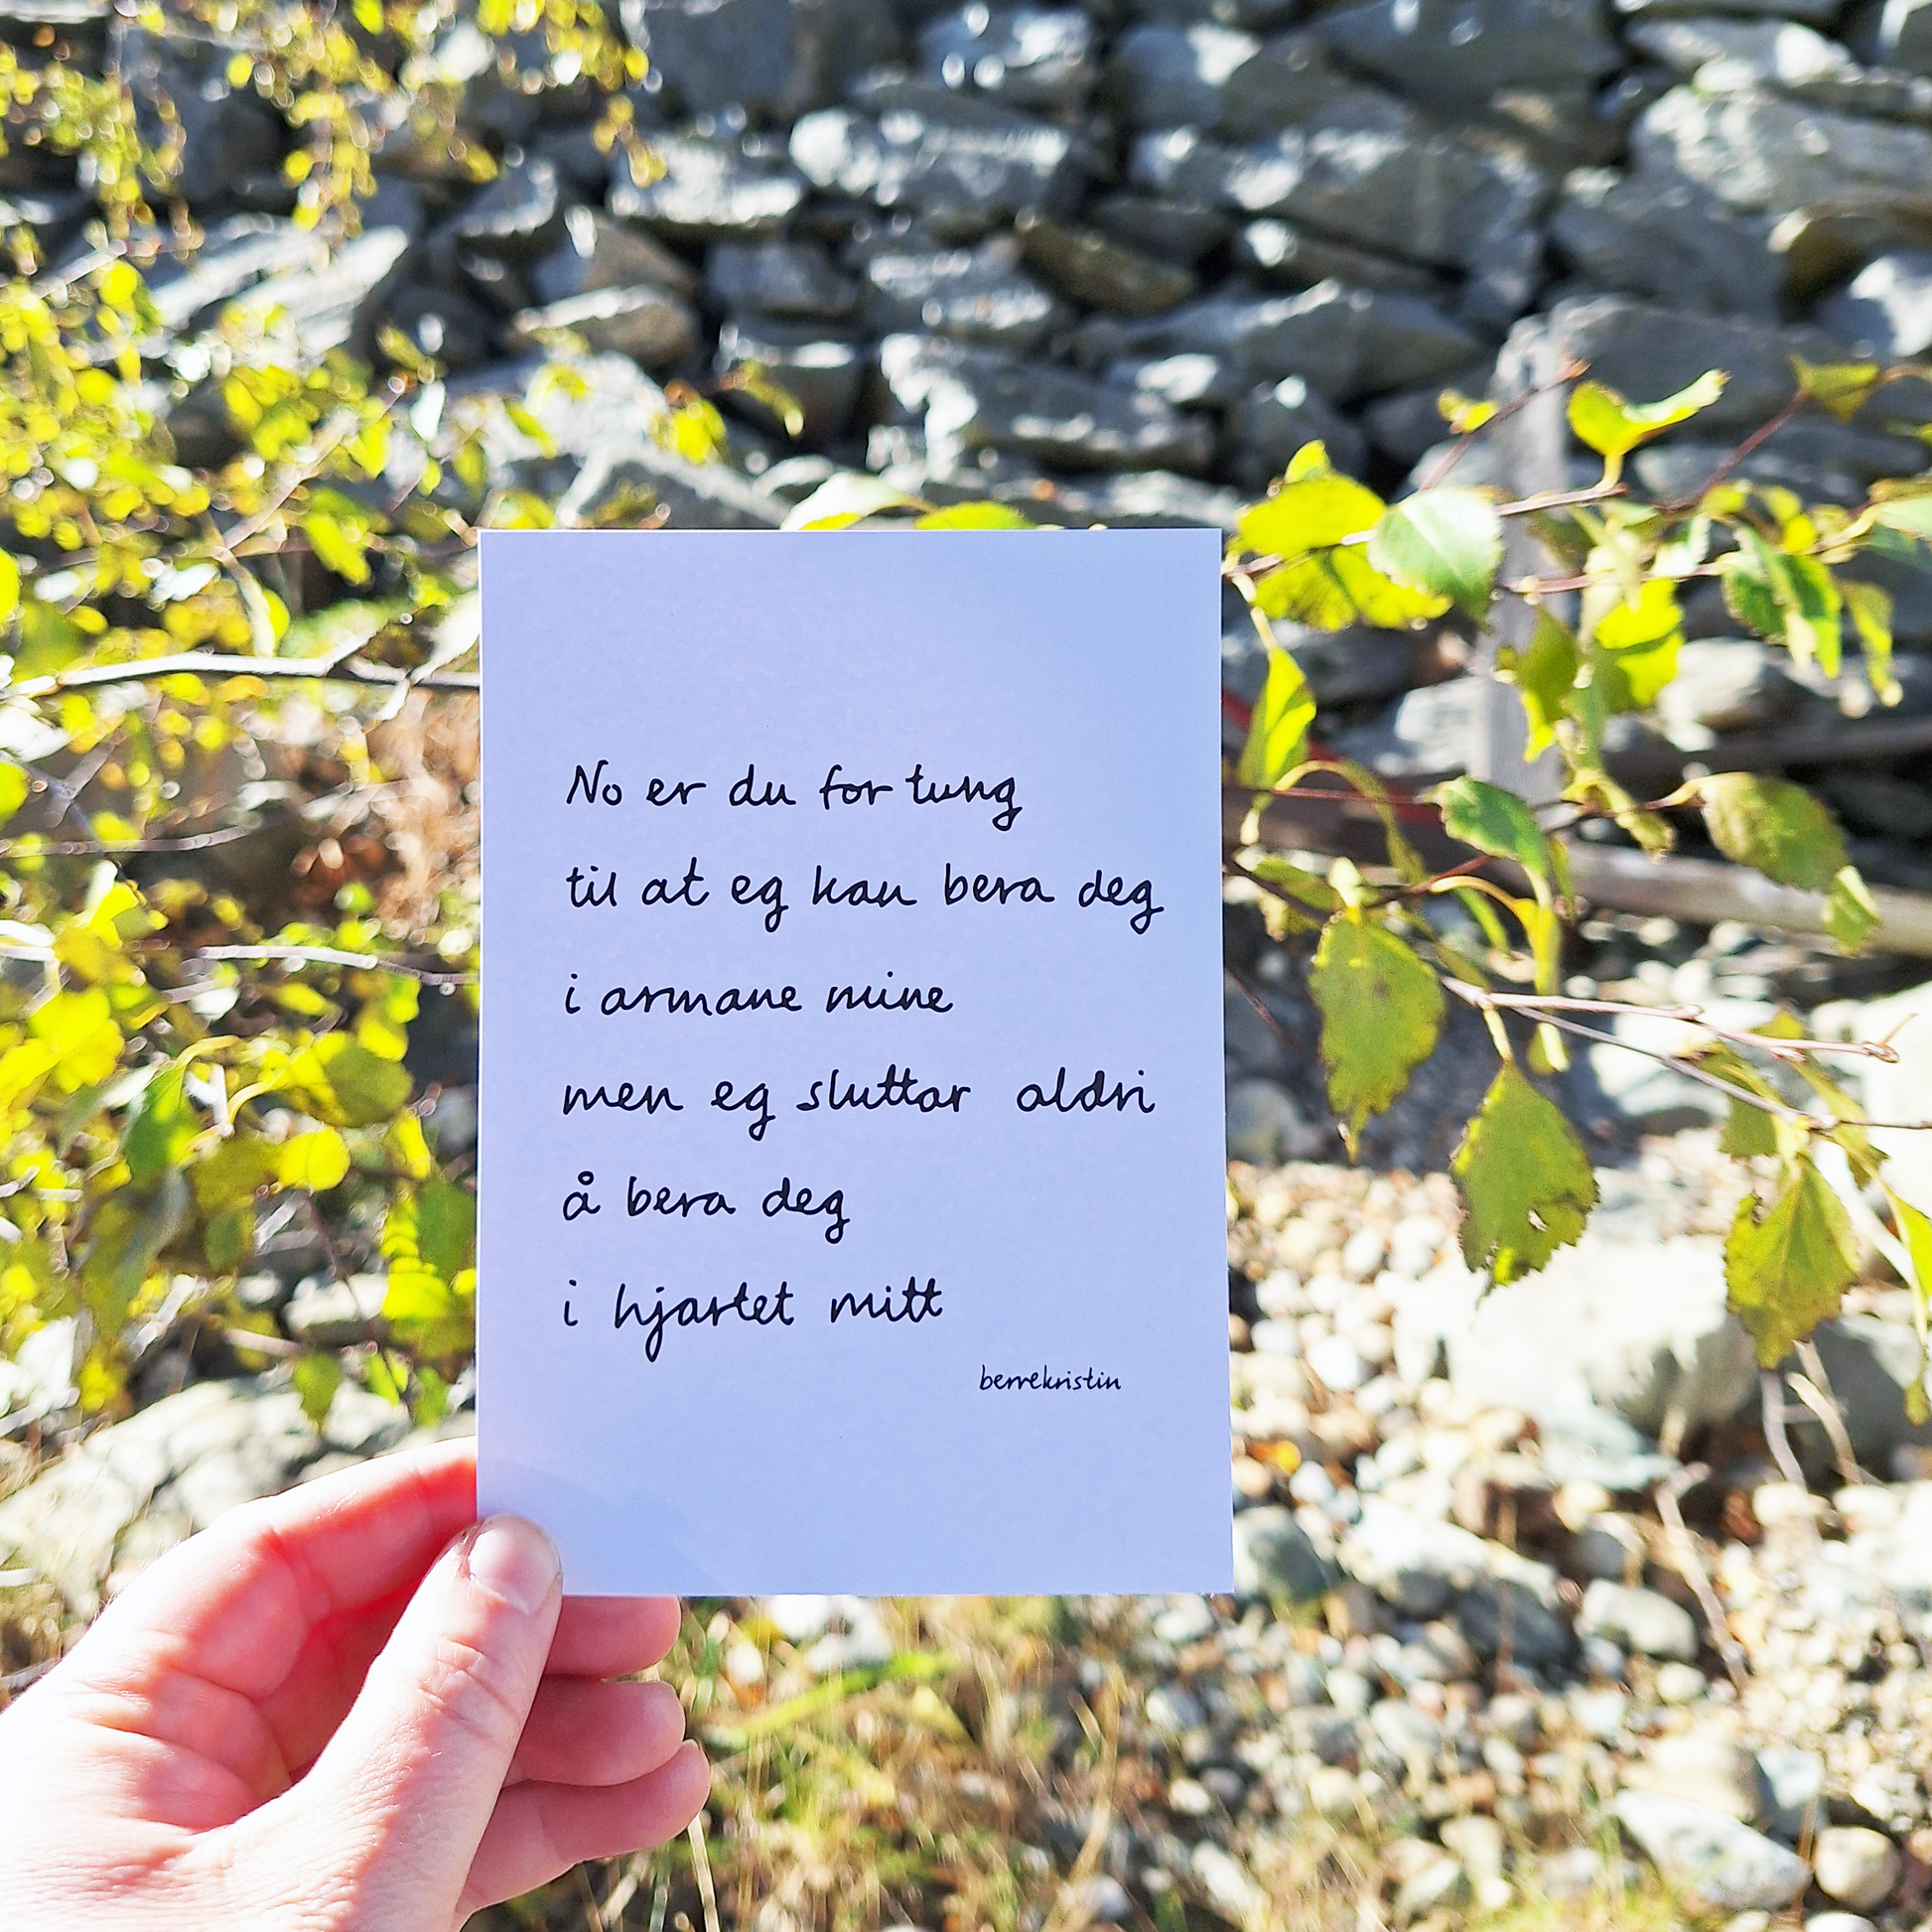 No er du for tung
til at eg kan bera deg
i armane mine
men eg sluttar aldri
å bera deg
i hjartet mitt
berrekristin